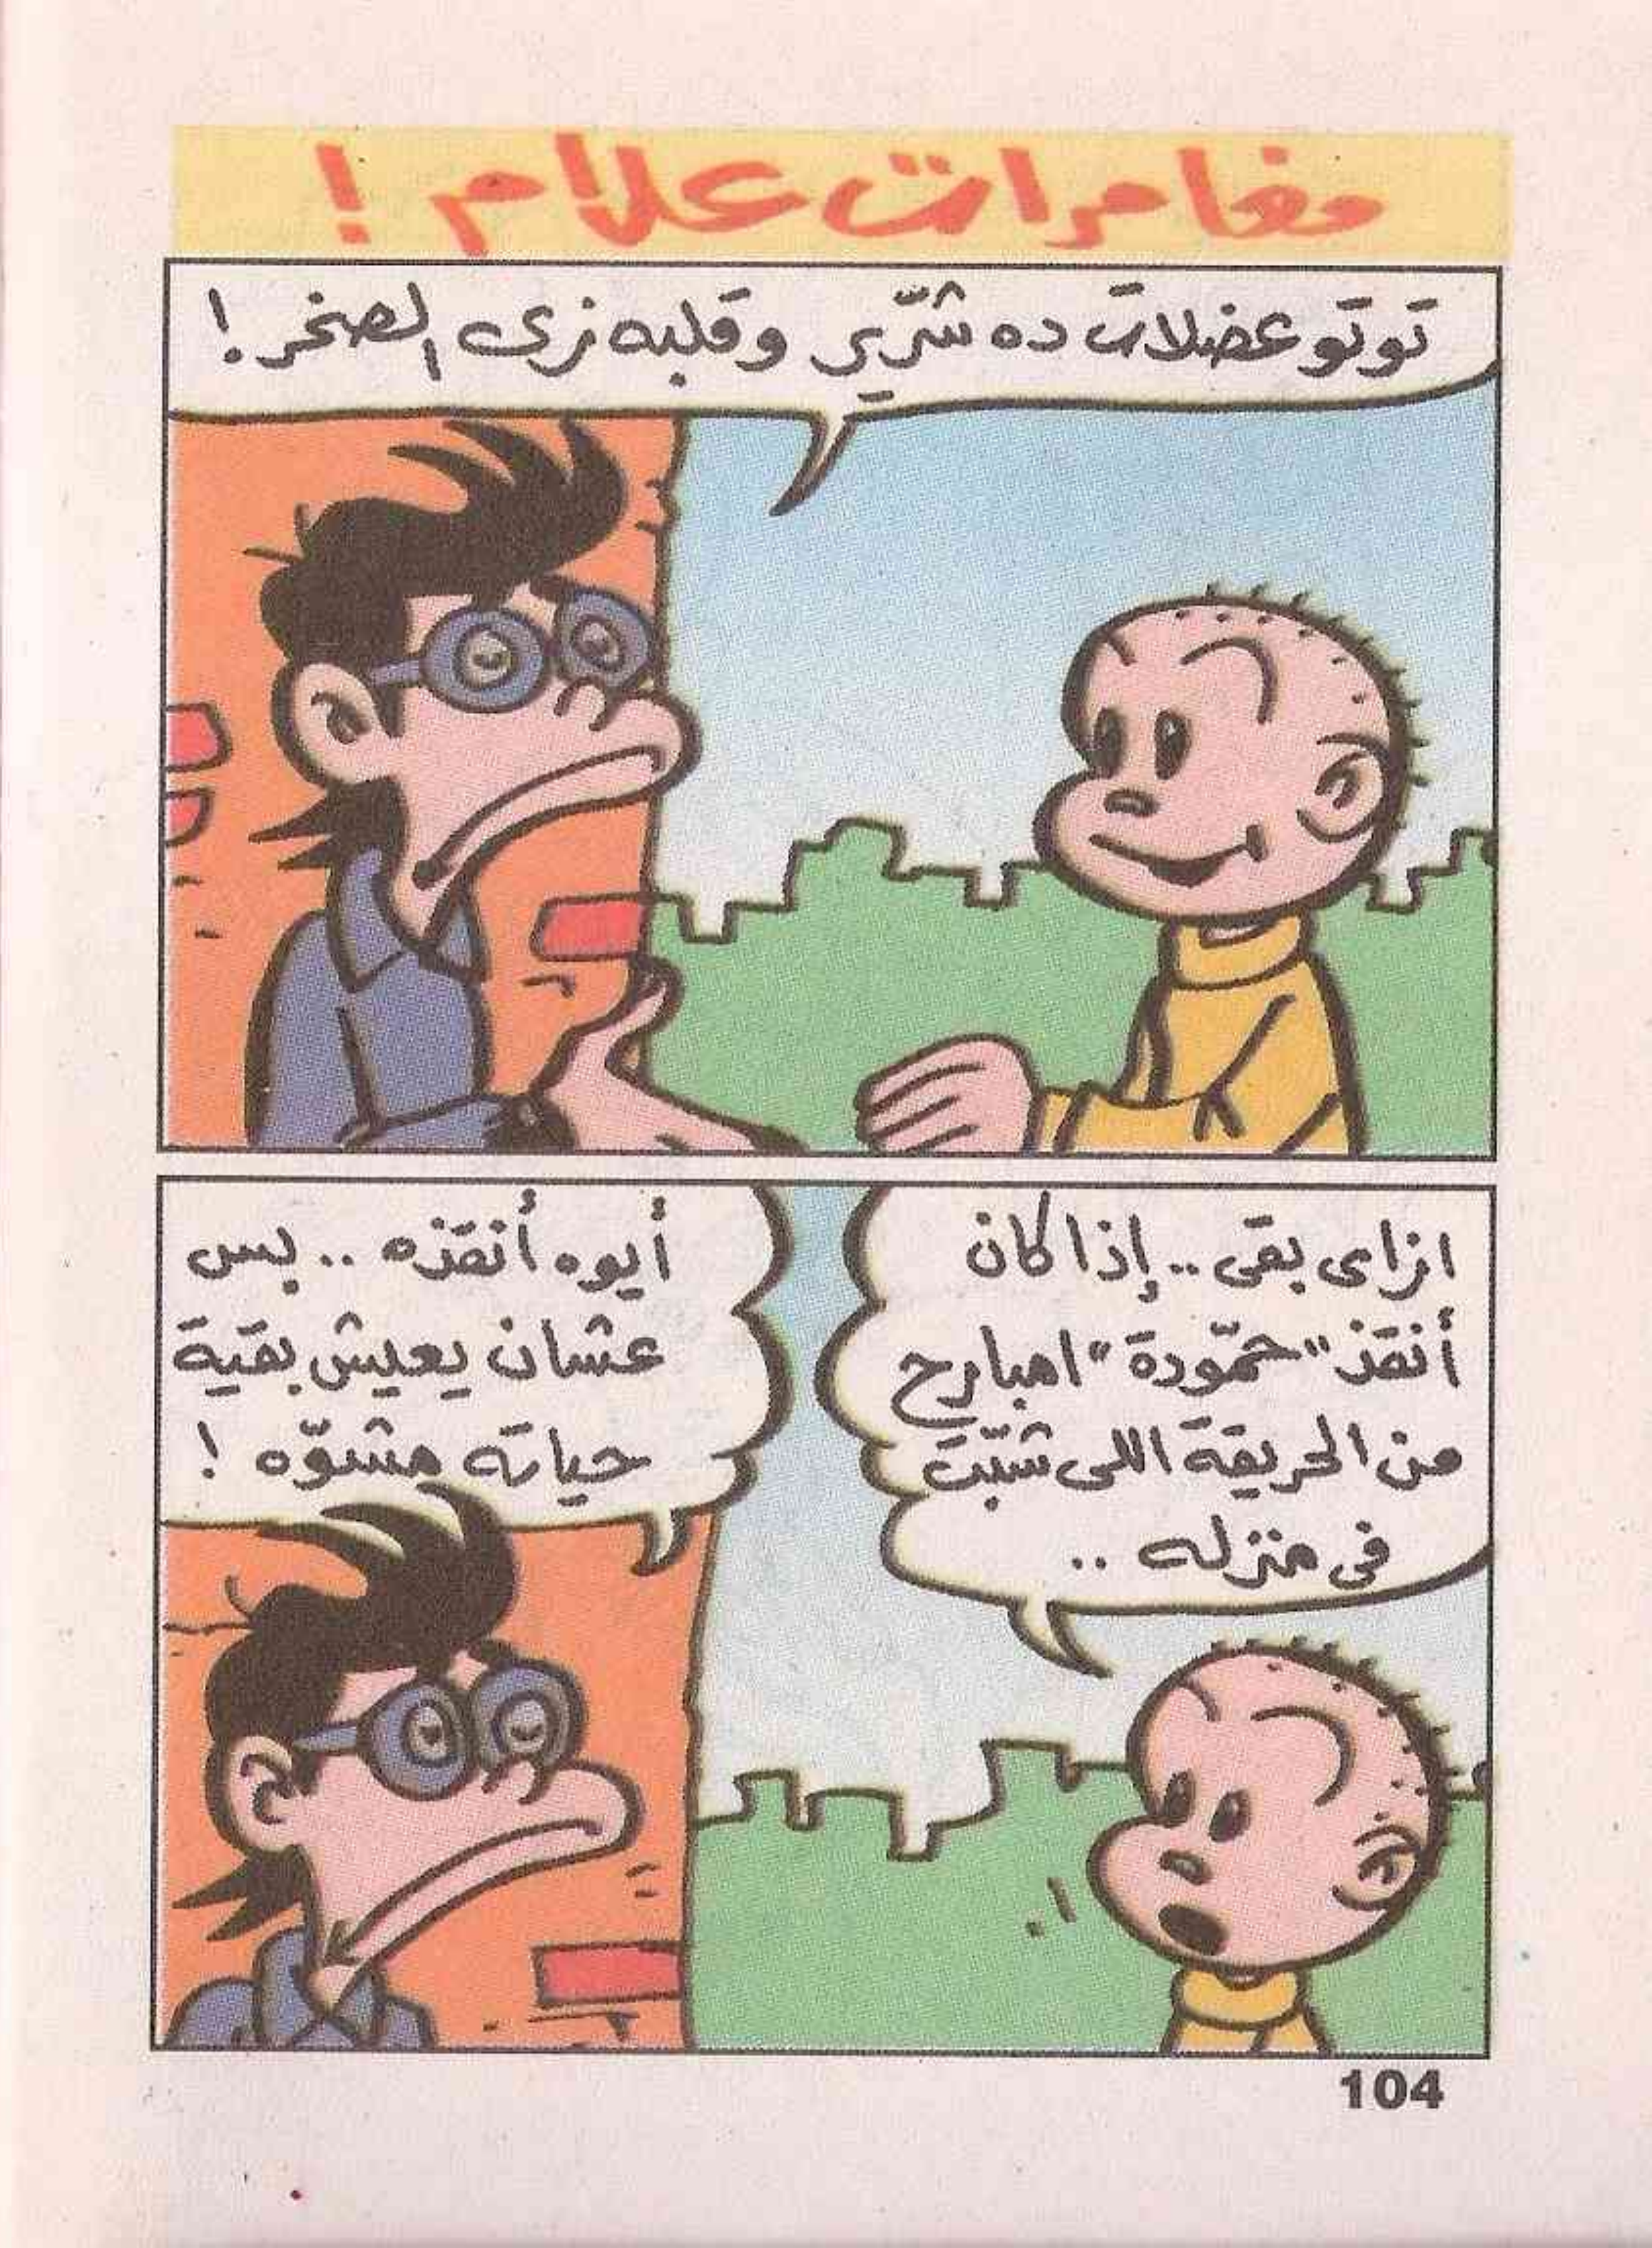 مغامرات علام !
توتو عضلات ده شرّير وقلبه زى الصخر !
ازاى بقى .. إذا كان
أنقذ "حمّودة" امبارح
من الحريقة اللى شبّت
فى منزله ..
أيوه أنقذه .. بس
عشان يعيش بقية
حياته مشوّه !
104